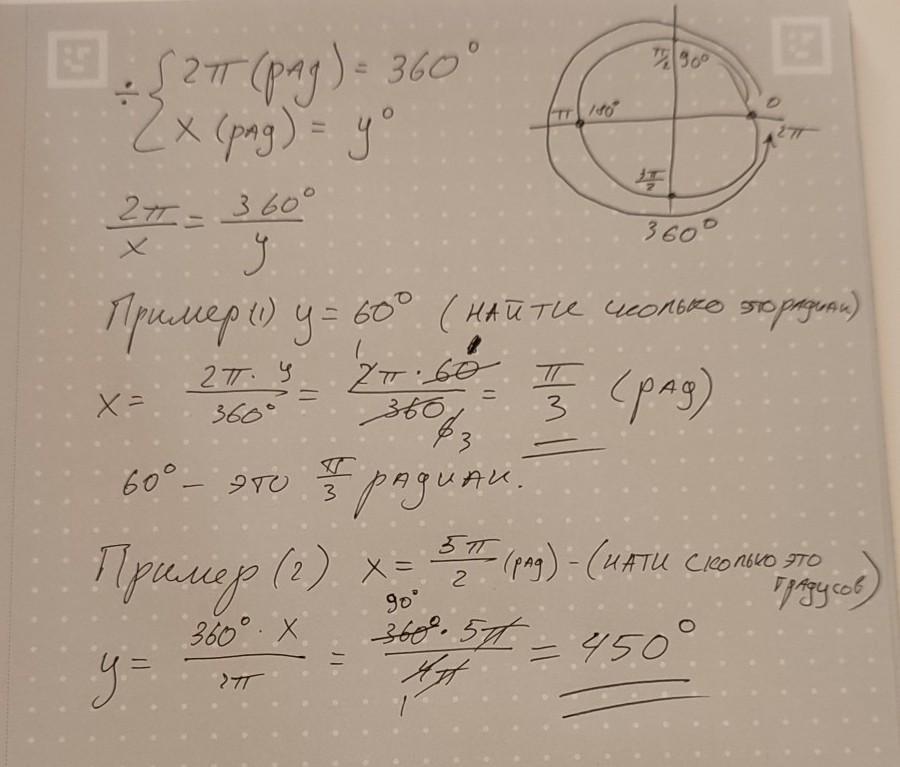 ÷ { 2π (рад) = 360°
x (рад) = y°
π/2 90°
π 180° 0
2π
3π/2
360°
2π/x = 360°/y
Пример (1) y = 60° (найти сколько это радиан)
x = 2π · y/360° = 2π · 60/360 = π/3 (рад)
1
6 3
60° – это π/3 радиан.
Пример (2) x = 5π/2 (рад) – (нати сколько это градусов)
90°
y = 360° · x/2π = 360° · 5π/4π = 450°
1